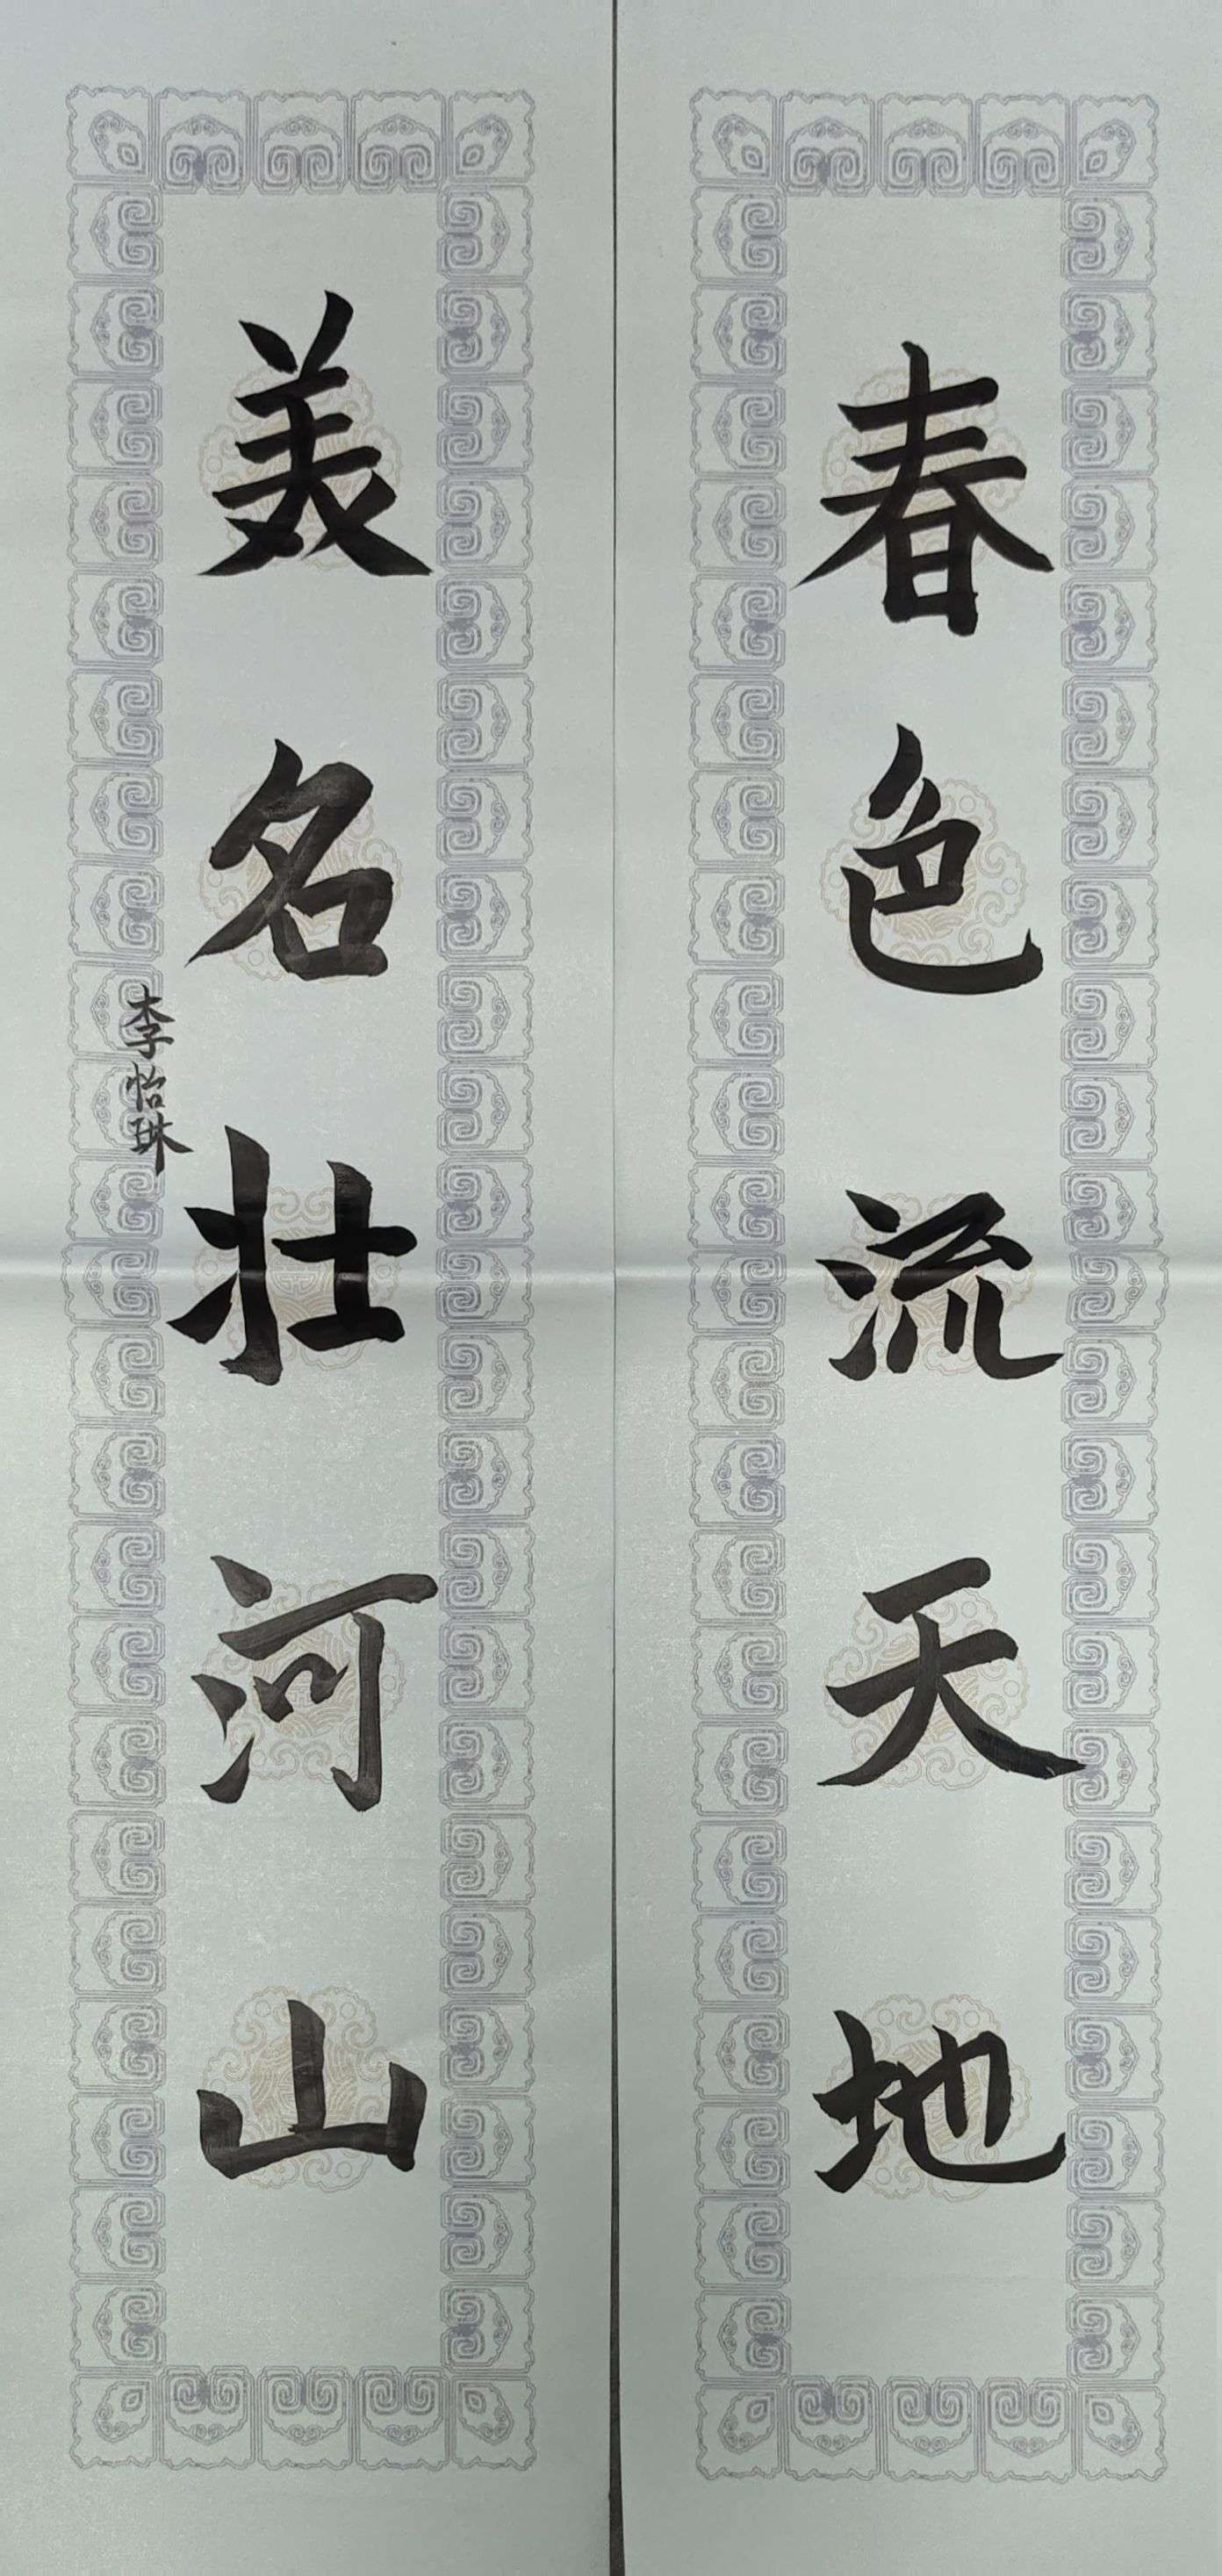 春色流天地
美名壮河山
李怡琳